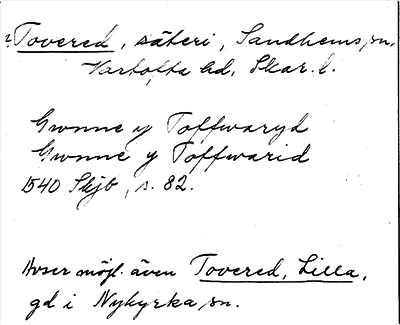 ? Tovered, säteri, Sandhems sn,
Vartofta hd, Skar. l.
Gwnne y Toffwaryd
Gwnne y Toffwarid
1540 Skjb, s. 82.
Avser möjl. även Tovered, Lilla,
gd i Nykyrka sn.